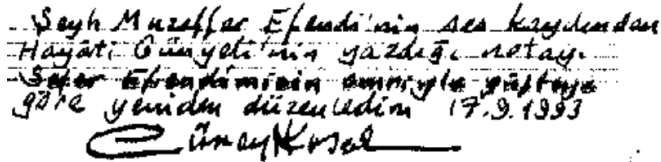 Şeyh Muzaffer Efendi'nin ses kaydından
Hayâti Günyeli'nin yazdığı notayı
Sefer Efendimizin emriyle güfteye
göre yeniden düzenledim 17.9.1993
Cüneyd Kosal